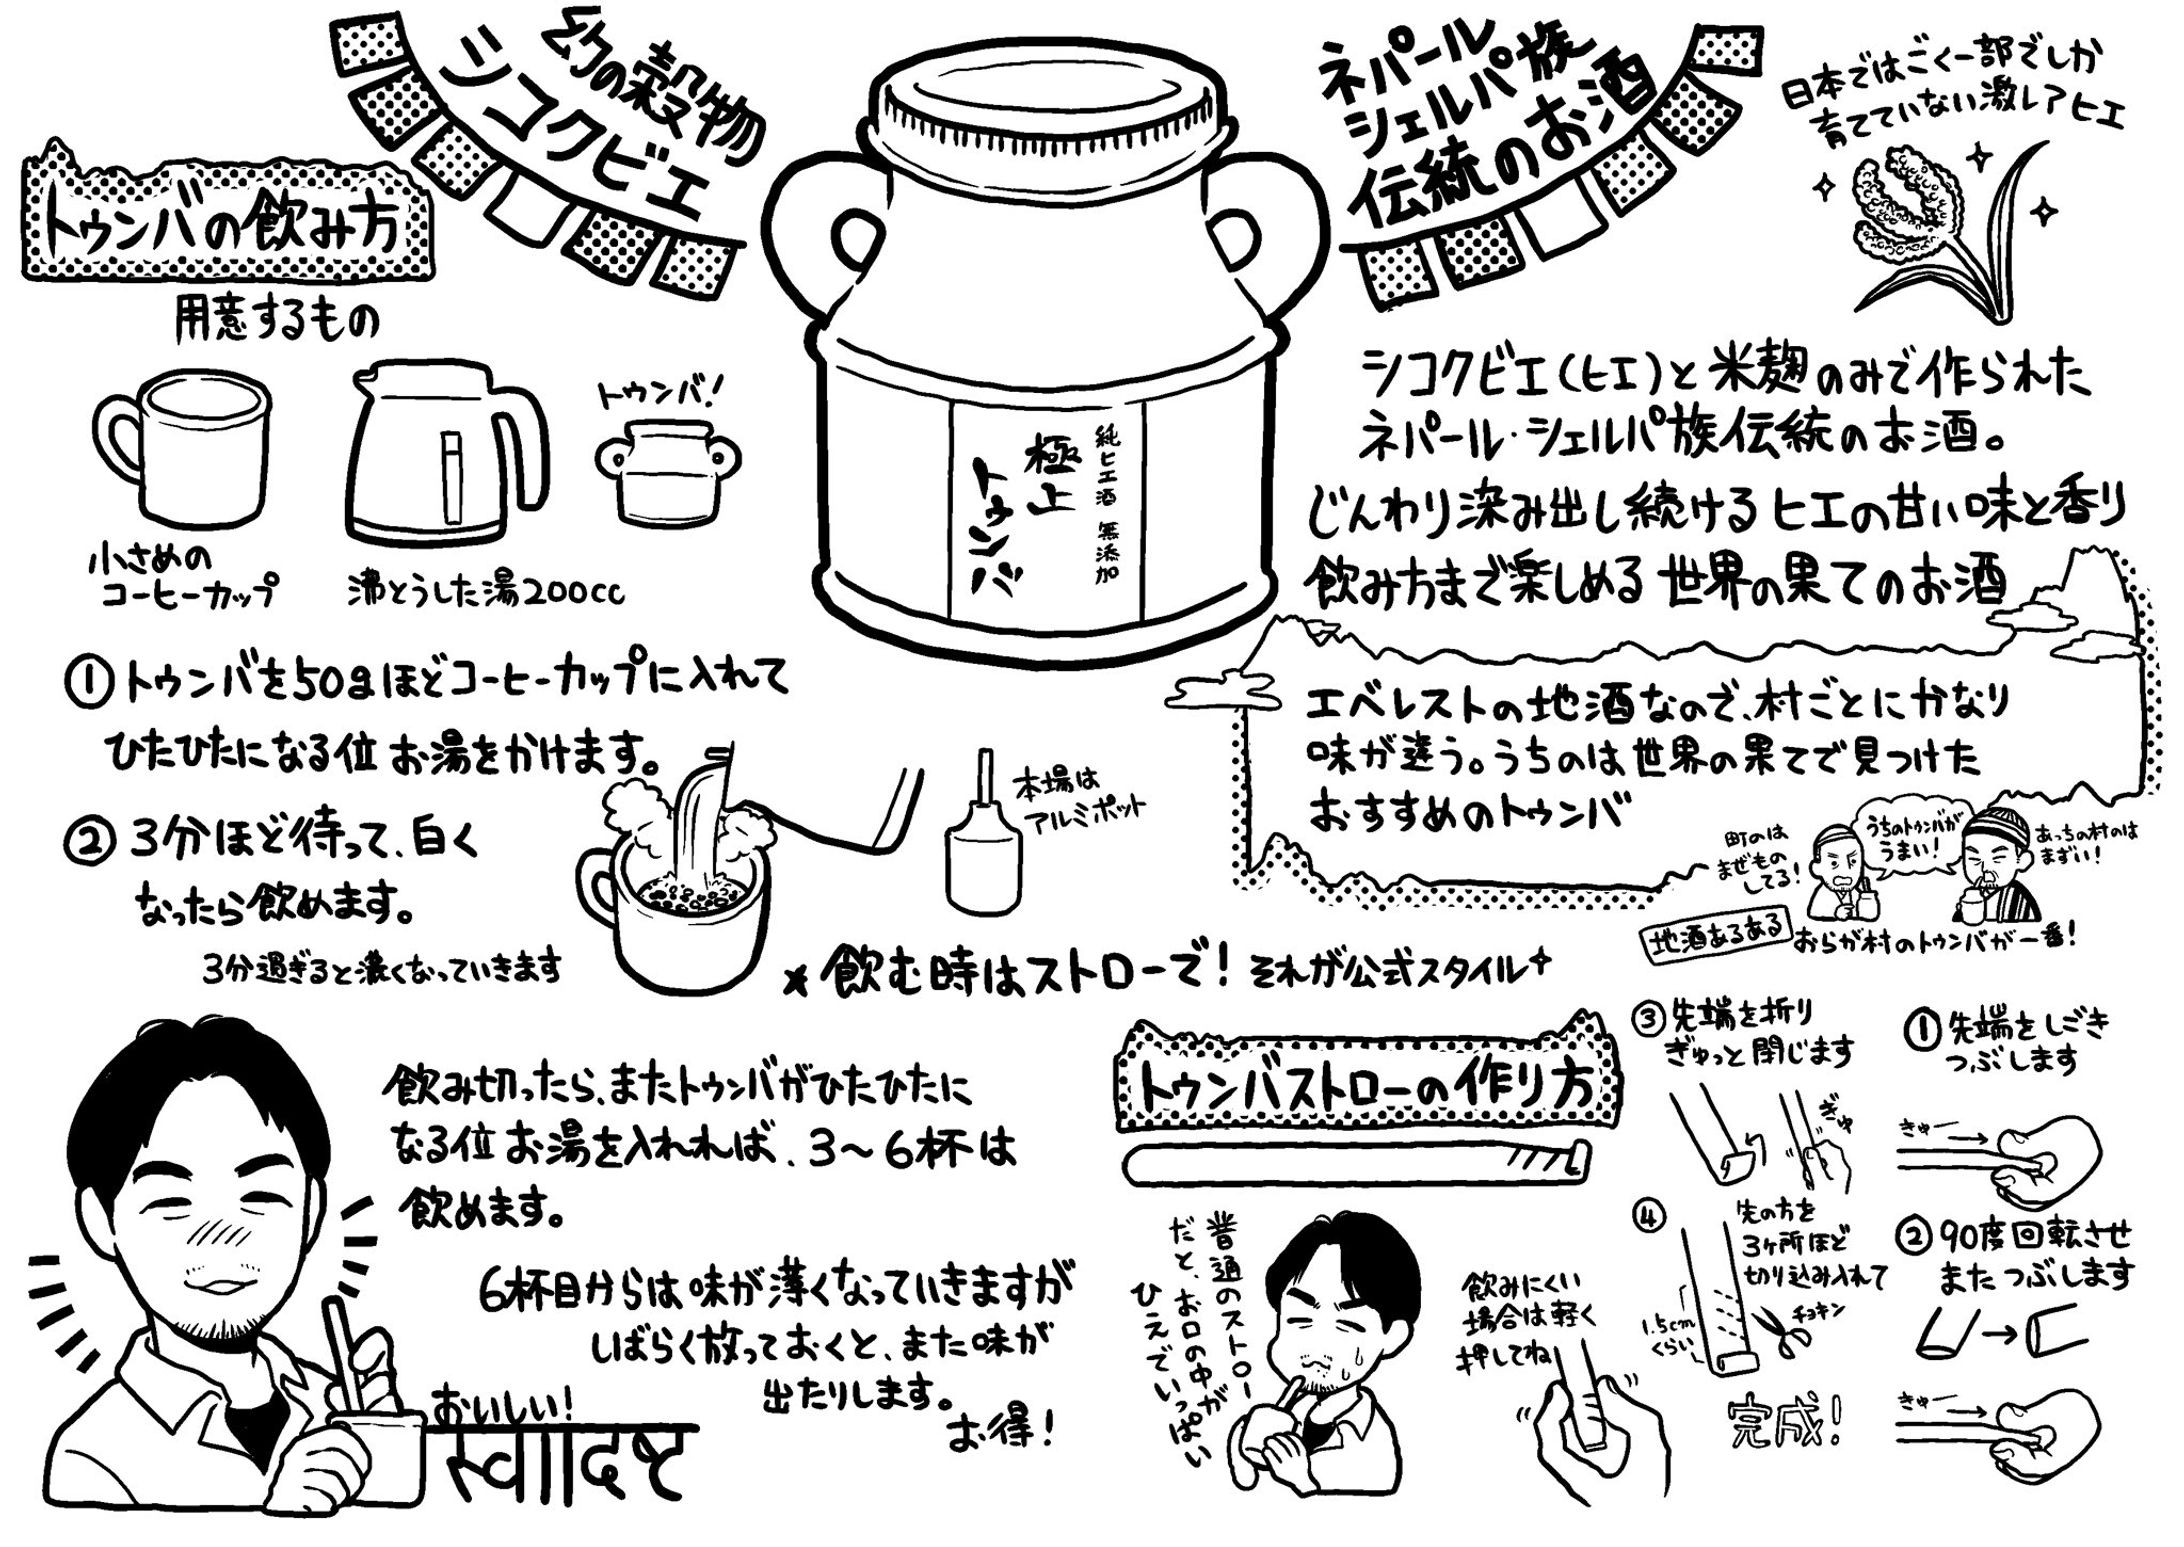 幻の穀物
シコクビエ
ネパール
シェルパ族
伝統のお酒
日本ではごく一部でしか
育てていない激レアヒエ
トゥンバの飲み方
用意するもの
トゥンバ!
小さめの
コーヒーカップ
沸とうした湯200cc
純ヒエ酒 無添加
極上
トゥンバ
シコクビエ(ヒエ)と米麹のみで作られた
ネパール・シェルパ族伝統のお酒。
じんわり染み出し続けるヒエの甘い味と香り
飲み方まで楽しめる世界の果てのお酒
①トゥンバを50gほどコーヒーカップに入れて
ひたひたになる位お湯をかけます。
②3分ほど待って、白く
なったら飲めます。
3分過ぎると濃くなっていきます
本場は
アルミポット
エベレストの地酒なので、村ごとにかなり
味が違う。うちのは世界の果てで見つけた
おすすめのトゥンバ
町のは
まぜもの
してる!
うちのトゥンバが
うまい!
あっちの村のは
まずい!
地酒あるある
おらが村のトゥンバが一番!
×飲む時はストローで!それが公式スタイル
飲み切ったら、またトゥンバがひたひたに
なる位お湯を入れれば、3〜6杯は
飲めます。
6杯目からは味が薄くなっていきますが
しばらく放っておくと、また味が
出たりします。
お得!
おいしい!
स्वाादिष्ट
トゥンバストローの作り方
①先端をしごき
つぶします
きゅー
②90度回転させ
またつぶします
きゅー
③先端を折り
ぎゅっと閉じます
ぎゅ
④先の方を
3ヶ所ほど
切り込み入れて
1.5cm
くらい
チョキン
完成!
普通のストロー
だと、お口の中が
ひえでいっぱい
飲みにくい
場合は軽く
押してね